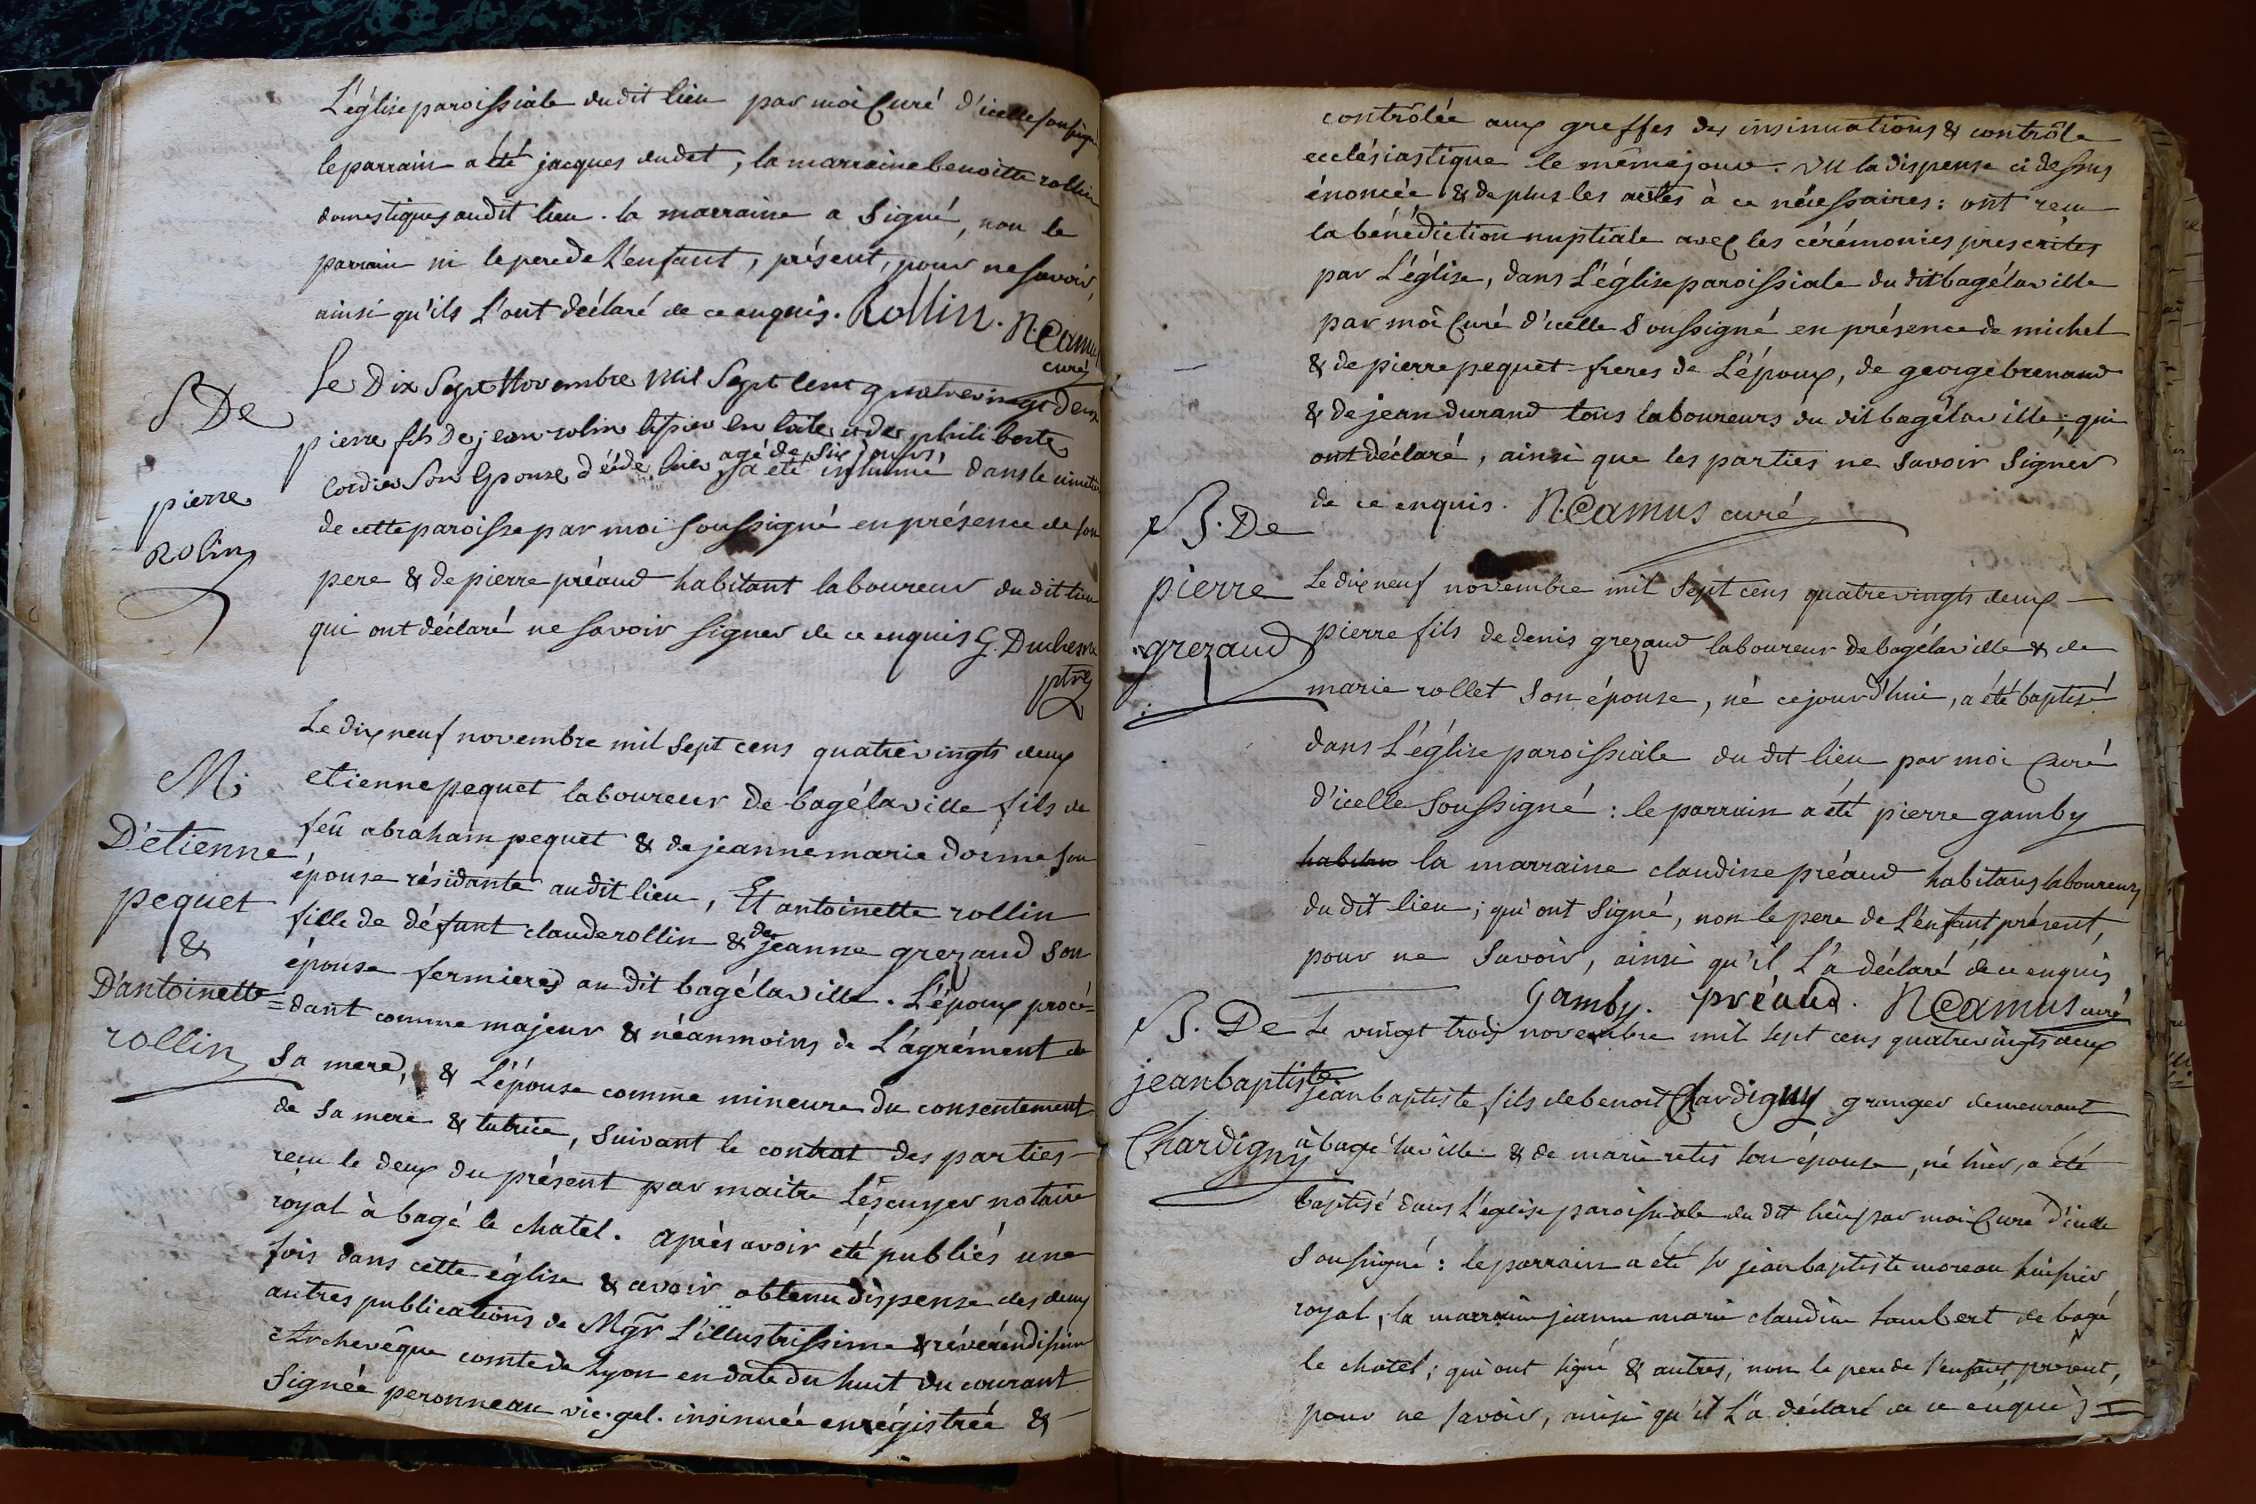 L'église paroissiale du dit lieu par moi Curé d'icelle soussigné
le parrain a été jacques dudet, la marraine benoitte rollin
domestiques audit lieu. la marraine a signé, non le
parrain ni le pere de L'enfant, présent, pour ne savoir,
ainsi qu'ils L'ont déclaré de ce enquis. Rollin. N. Camus
curé
S. De
pierre
Rolin
Le Dix Sept Novembre Mil Sept Cent quatrevingt Deux
pierre fils De jean rolin et de philiberte
Cordier Son Epouse décédé hier agé de six jours, a été inhumé dans le cimetiere
de cette paroisse par moi soussigné en présence de son
pere & de pierre préaud habitant laboureur du dit lieu
qui ont déclaré ne savoir signer de ce enquis G. Duchesne
ptre
M;
D'étienne
pequet
&
D'antoinette
rollin
Le dix neuf novembre mil sept cens quatrevingts deux
etienne pequet laboureur de bagélaville fils de
feû abraham pequet & de jeanne marie dorme son
épouse résidante audit lieu, Et antoinette rollin
fille de défunt claude rollin & de jeanne grezaud son
épouse fermieres au dit bagélaville. L'époux procé=
=dant comme majeur & néanmoins de L'agrément de
sa mere, & L'épouse comme mineure du consentement
de sa mere & tutrice, suivant le contrat des parties
reçu le deux du présent par maitre Lescuyer notaire
royal à bagé le chatel. Après avoir été publiés une
fois dans cette église & avoir obtenu dispense des deux
autres publications de Mgr L'illustrissime & révérendissime
Archevêque comte de Lyon en date du huit du courant
signée peronneau vic. gal. insinuée enrégistrée &
contrôlée aux greffes des insinuations & contrôle
ecclésiastique le même jour. Vu la dispense ci dessus
énoncée & de plus les actes à ce nécessaires: ont reçu
la bénédiction nuptiale avec les cérémonies prescrites
par L'église, dans L'église paroissiale du dit bagélaville
par moi Curé d'icelle soussigné en présence de michel
& de pierre pequet freres de L'époux, de george brenaud
& de jean durand tous laboureurs du dit bagélaville; qui
ont déclaré, ainsi que les parties ne savoir signer
de ce enquis. N. Camus curé
B. De
pierre
grezaud
Le dix neuf novembre mil sept cens quatrevingts deux
pierre fils de denis grezaud laboureur de bagélaville & de
marie rollet son épouse, né cejourd'hui, a été baptisé
dans L'église paroissiale du dit lieu par moi Curé
d'icelle soussigné: le parrain a été pierre gamby
la marraine claudine préaud habitans laboureurs
du dit lieu; qui ont signé, non le pere de L'enfant présent,
pour ne savoir, ainsi qu'il L'a déclaré de ce enquis
Gamby. préaud. N. Camus curé
B. De
jean baptiste
Chardigny
Le vingt trois novembre mil sept cens quatrevingts deux
jean baptiste fils de benoit Chardigny granger demeurant
à bagé la ville & de marie retis son épouse, né hier, a été
baptisé dans L'église paroissiale du dit lieu par moi Curé d'icelle
soussigné: le parrain a été sr jean baptiste moreau huissier
royal, la marraine jeanne marie claudine Lambert de bagé
le chatel; qui ont signé & autres, non le pere de l'enfant, présent,
pour ne savoir, ainsi qu'il L'a déclaré de ce enquis =